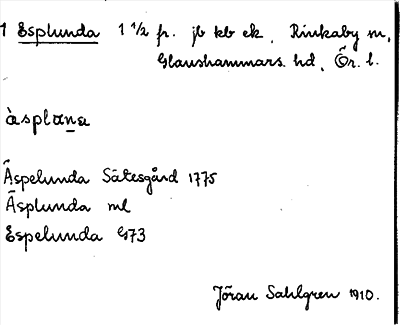 1 Esplunda 1 1/2 fr. jb kb ek. Rinkaby sn,
Glanshammars hd, Ör. l.
àsplana
Äspelunda Sätesgård 1775
Äsplunda ml
Espelunda G73
Jöran Sahlgren 1910.